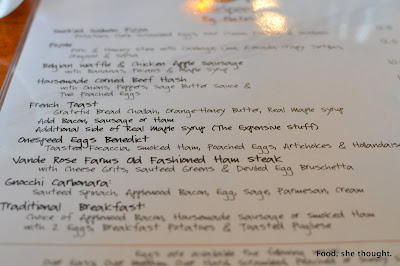 Smoked Salmon Pizza
Pozole
Pork & Hominy Stew with Cabbage, Lime, Avocado, Crispy Tortillas,
Oregano & Salsa
Belgian Waffle & Chicken Apple Sausage
with Bananas, Pecans & Maple Syrup
Housemade Corned Beef Hash
with Onions, Peppers, Sage Butter Sauce &
Two Poached Eggs
French Toast
Grateful Bread Challah, Orange-Honey Butter, Real Maple Syrup
Add Bacon, Sausage or Ham
Additional side of Real Maple Syrup (The Expensive Stuff)
OneSpeed Eggs Benedict
Toasted Focaccia, Smoked Ham, Poached Eggs, Artichokes & Hollandaise
Vande Rose Farms Old Fashioned Ham Steak
with Cheese Grits, Sauteed Greens & Deviled Egg Bruschetta
Gnocchi Carbonara:
Sauteed Spinach, Applewood Bacon, Egg, Sage, Parmesan, Cream
Traditional Breakfast:
Choice of Applewood Bacon, Housemade Sausage or Smoked Ham
with 2 Eggs, Breakfast Potatoes & Toasted Pugliese
Eggs are available the following
Food, she thought.